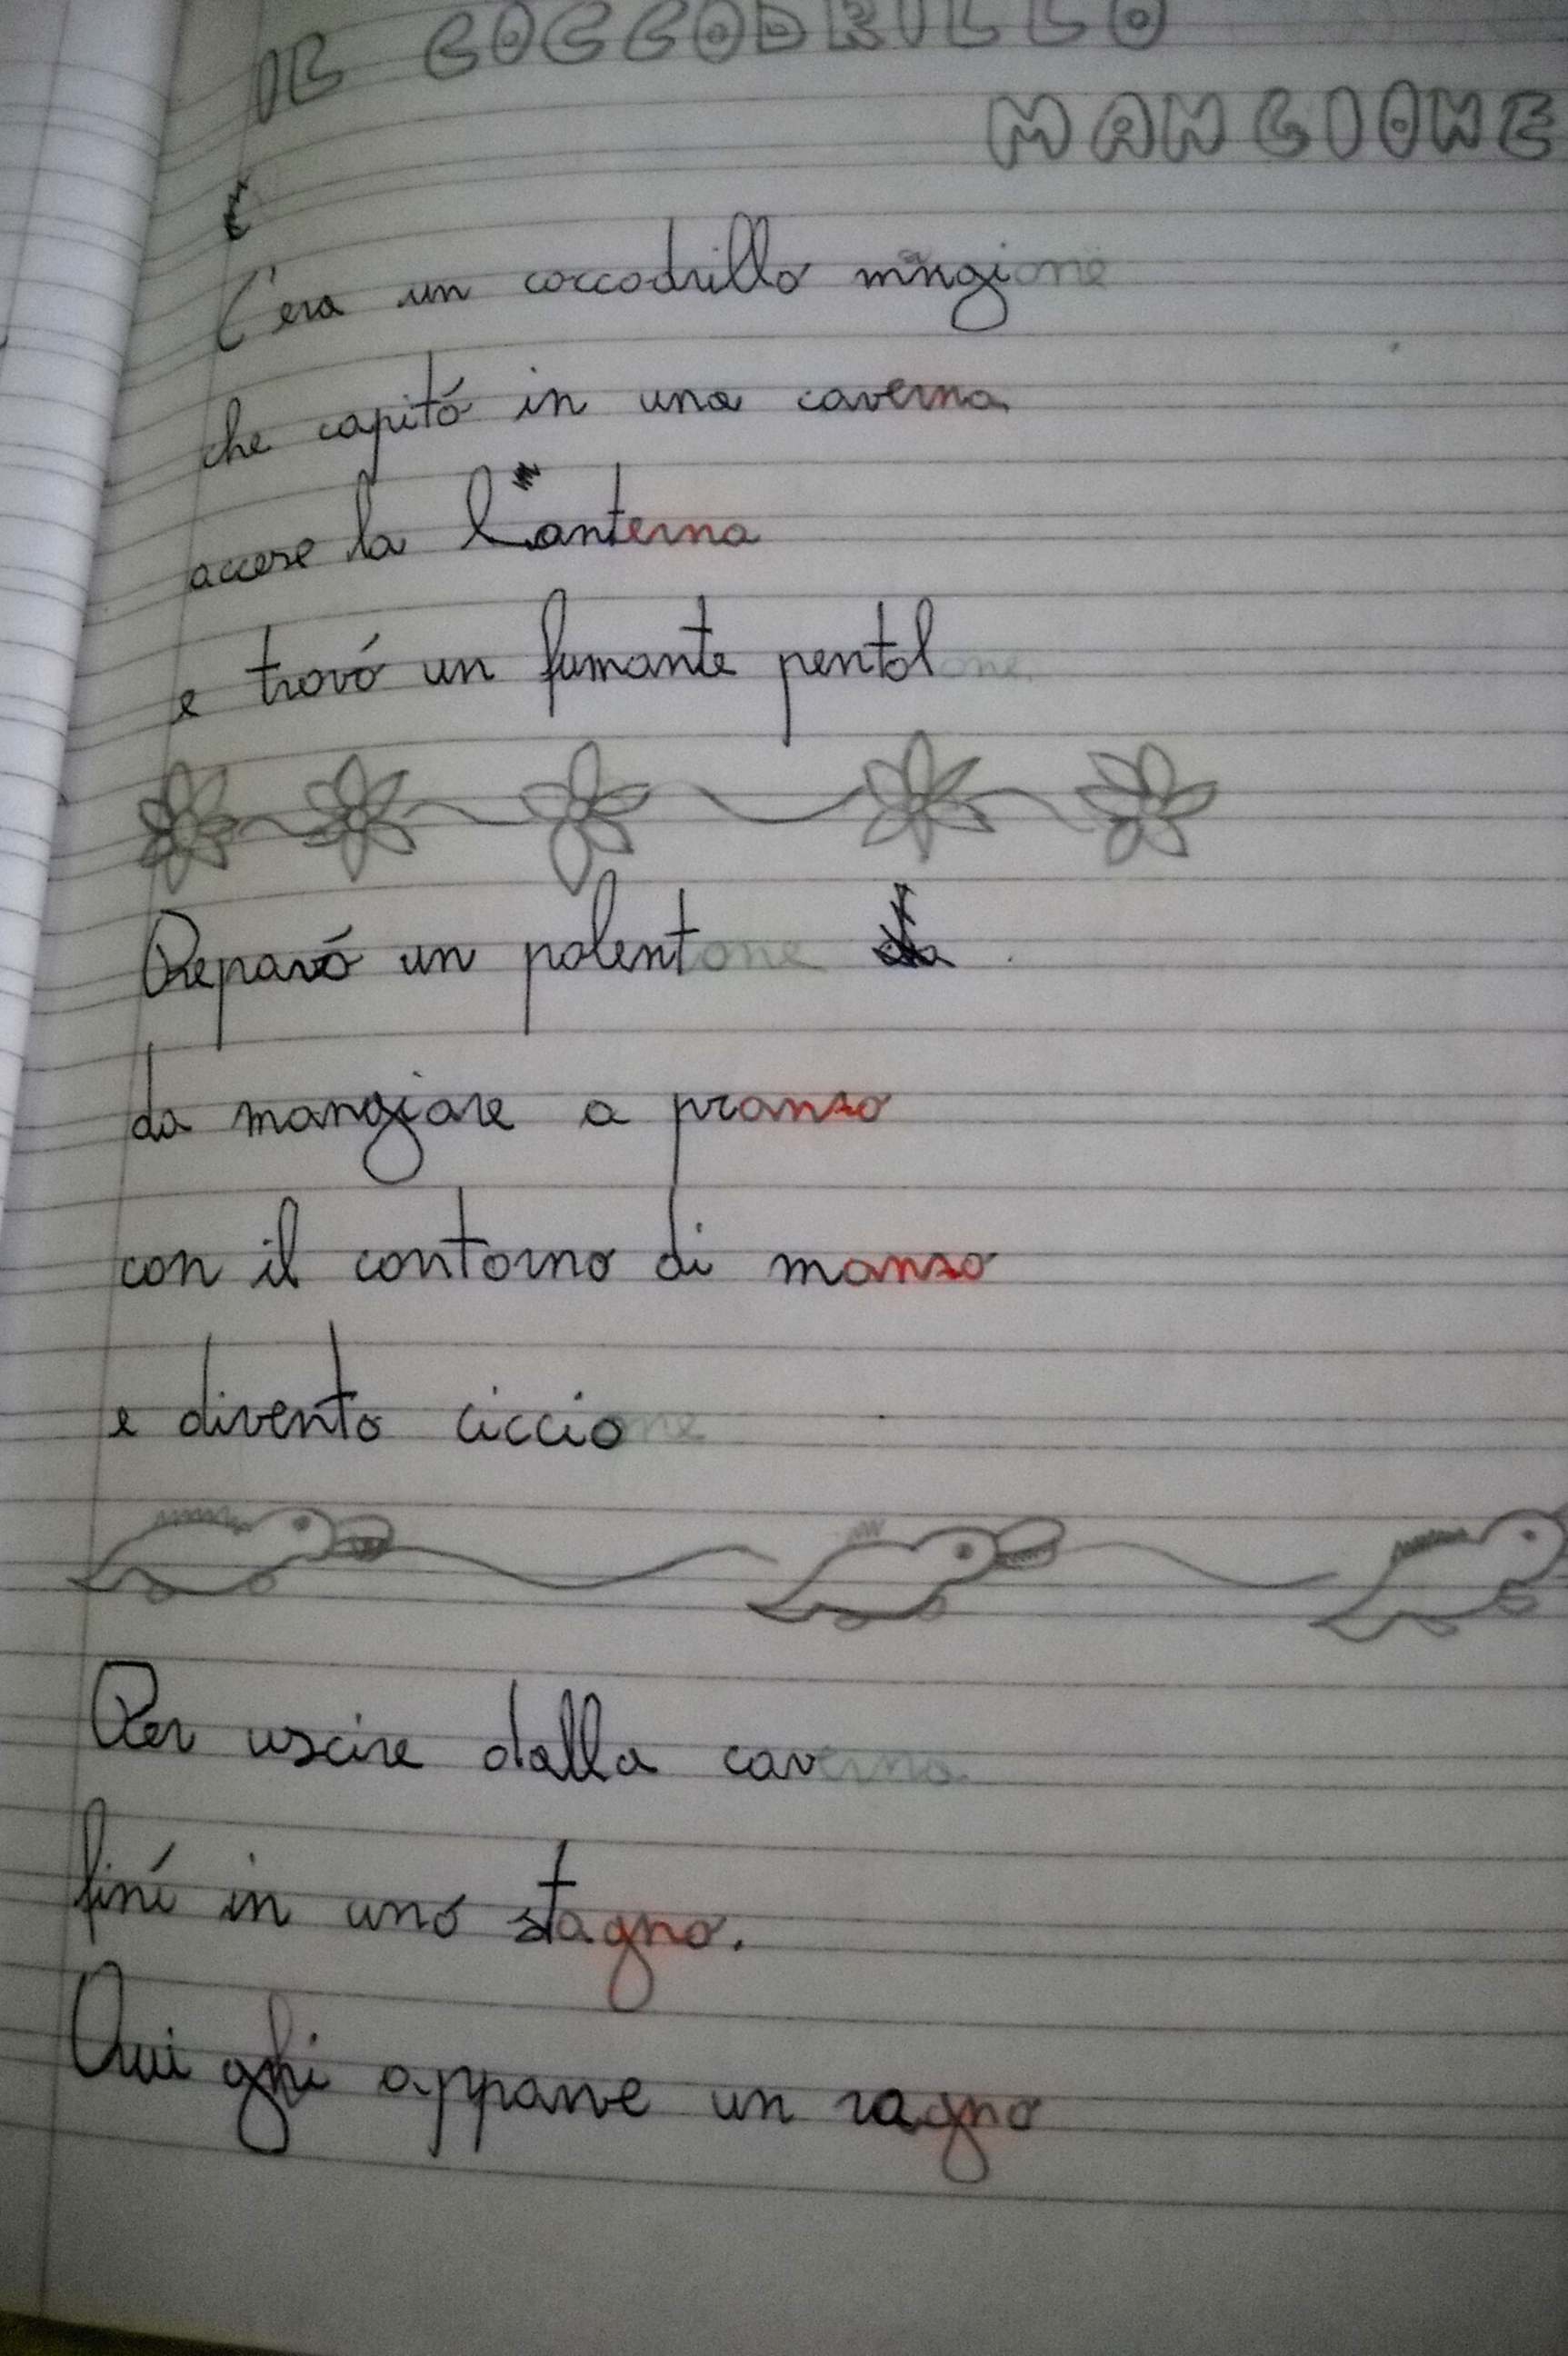 IL COCCODRILLO
MANGIONE
C'era un coccodrillo mangione
che capitó in una caverna
accese la lanterna
e trovó un fumante pentolone.
Preparó un polentone
da mangiare a pranzo
con il contorno di manzo
e divento ciccione
Per uscire dalla caverna
finí in uno stagno.
Qui ghi apparve un ragno